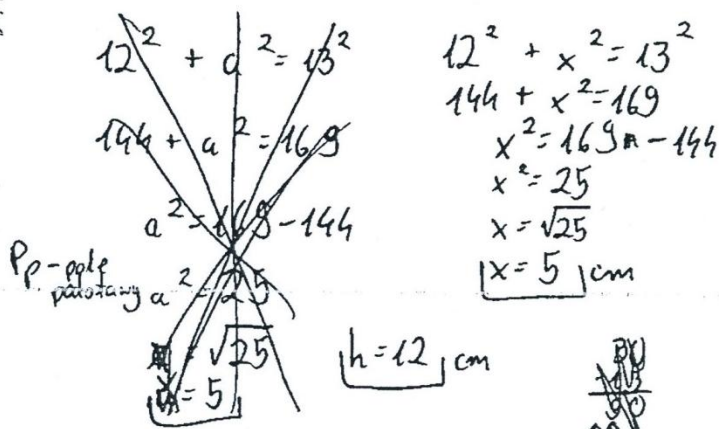 12² + a² = 13²
144 + a² = 169
a² = 169 - 144
Pp - pole
podstawy a² = 25
√25
= 5
12² + x² = 13²
144 + x² = 169
x² = 169 - 144
x² = 25
x = √25
x = 5 cm
h = 12 cm